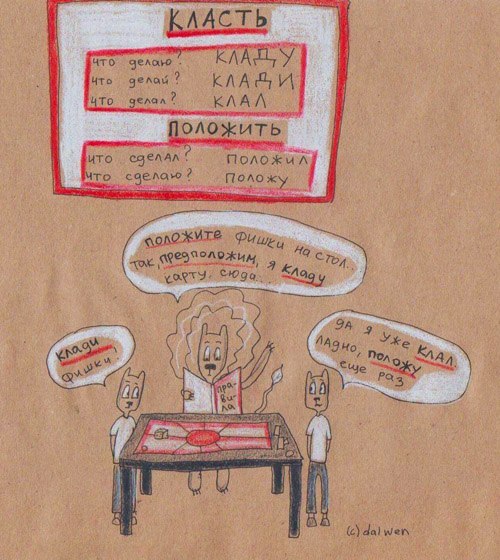 КЛАСТЬ
что делаю? КЛАДУ
что делай? КЛАДИ
что делал? КЛАЛ
ПОЛОЖИТЬ
что сделал? ПОЛОЖИЛ
что сделаю? ПОЛОЖУ
ПОЛОЖИТЕ ФИШКИ НА СТОЛ.
ТАК, ПРЕДПОЛОЖИМ, Я КЛАДУ
КАРТУ СЮДА...
КЛАДИ
ФИШКИ
ДА Я УЖЕ КЛАЛ,
ЛАДНО, ПОЛОЖУ
ЕЩЕ РАЗ
ПРА-
ВИ-
ЛА
(c) dalwen